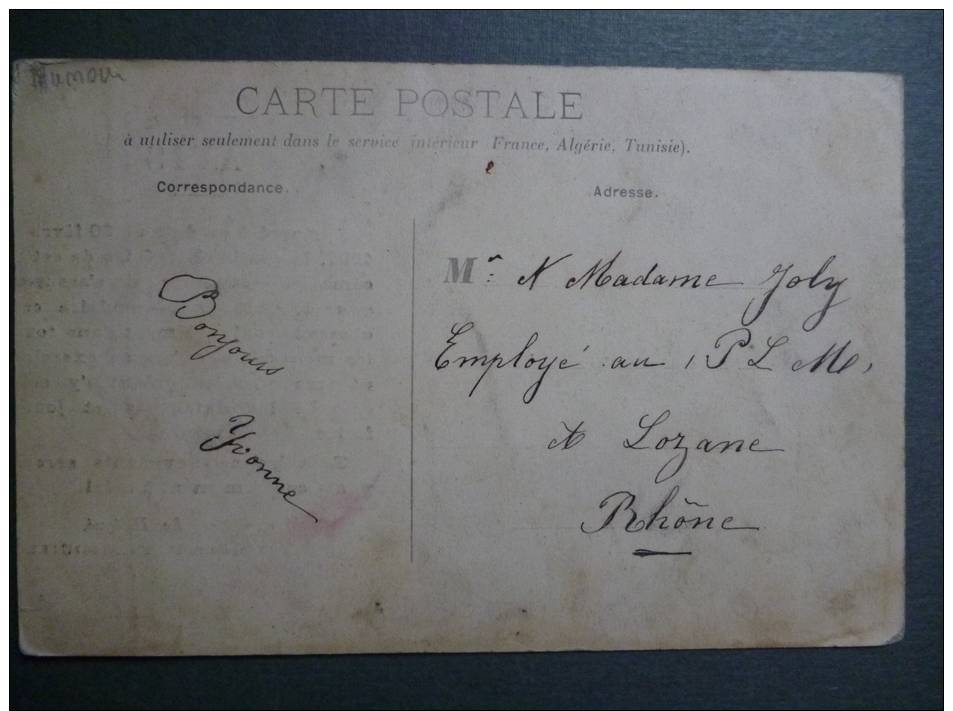 Humour
CARTE POSTALE
à utiliser seulement dans le service intérieur France, Algérie, Tunisie).
Correspondance.
Adresse.
Bonjours
Yvonne
Mr. & Madame Joly
Employé au P L M,
à Lozane
Rhône